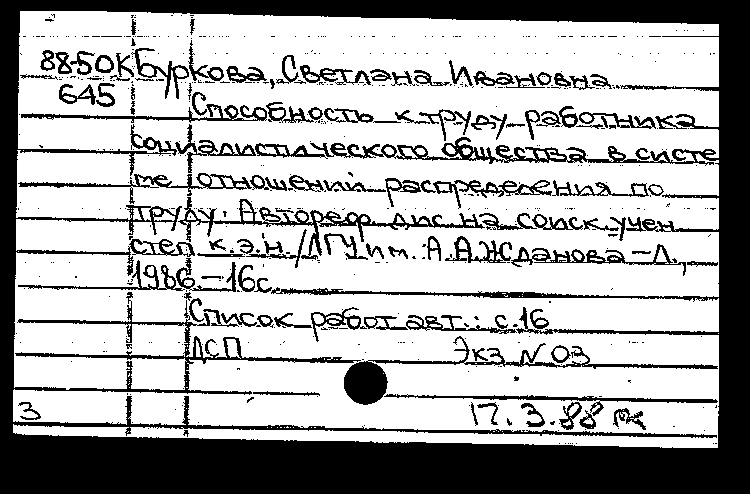 88-50К Буркова, Светлана Ивановна
645
Способность к труду работника
социалистического общества в систе
ме отношений распределения по
труду: Автореф. дис. на соиск. учен
степ к.э.н. /ЛГУ им. А.А.Жданова – Л.,
1986. – 16с.
Список работ авт.: с.16
ДСП Экз N 03
3 17.3.88